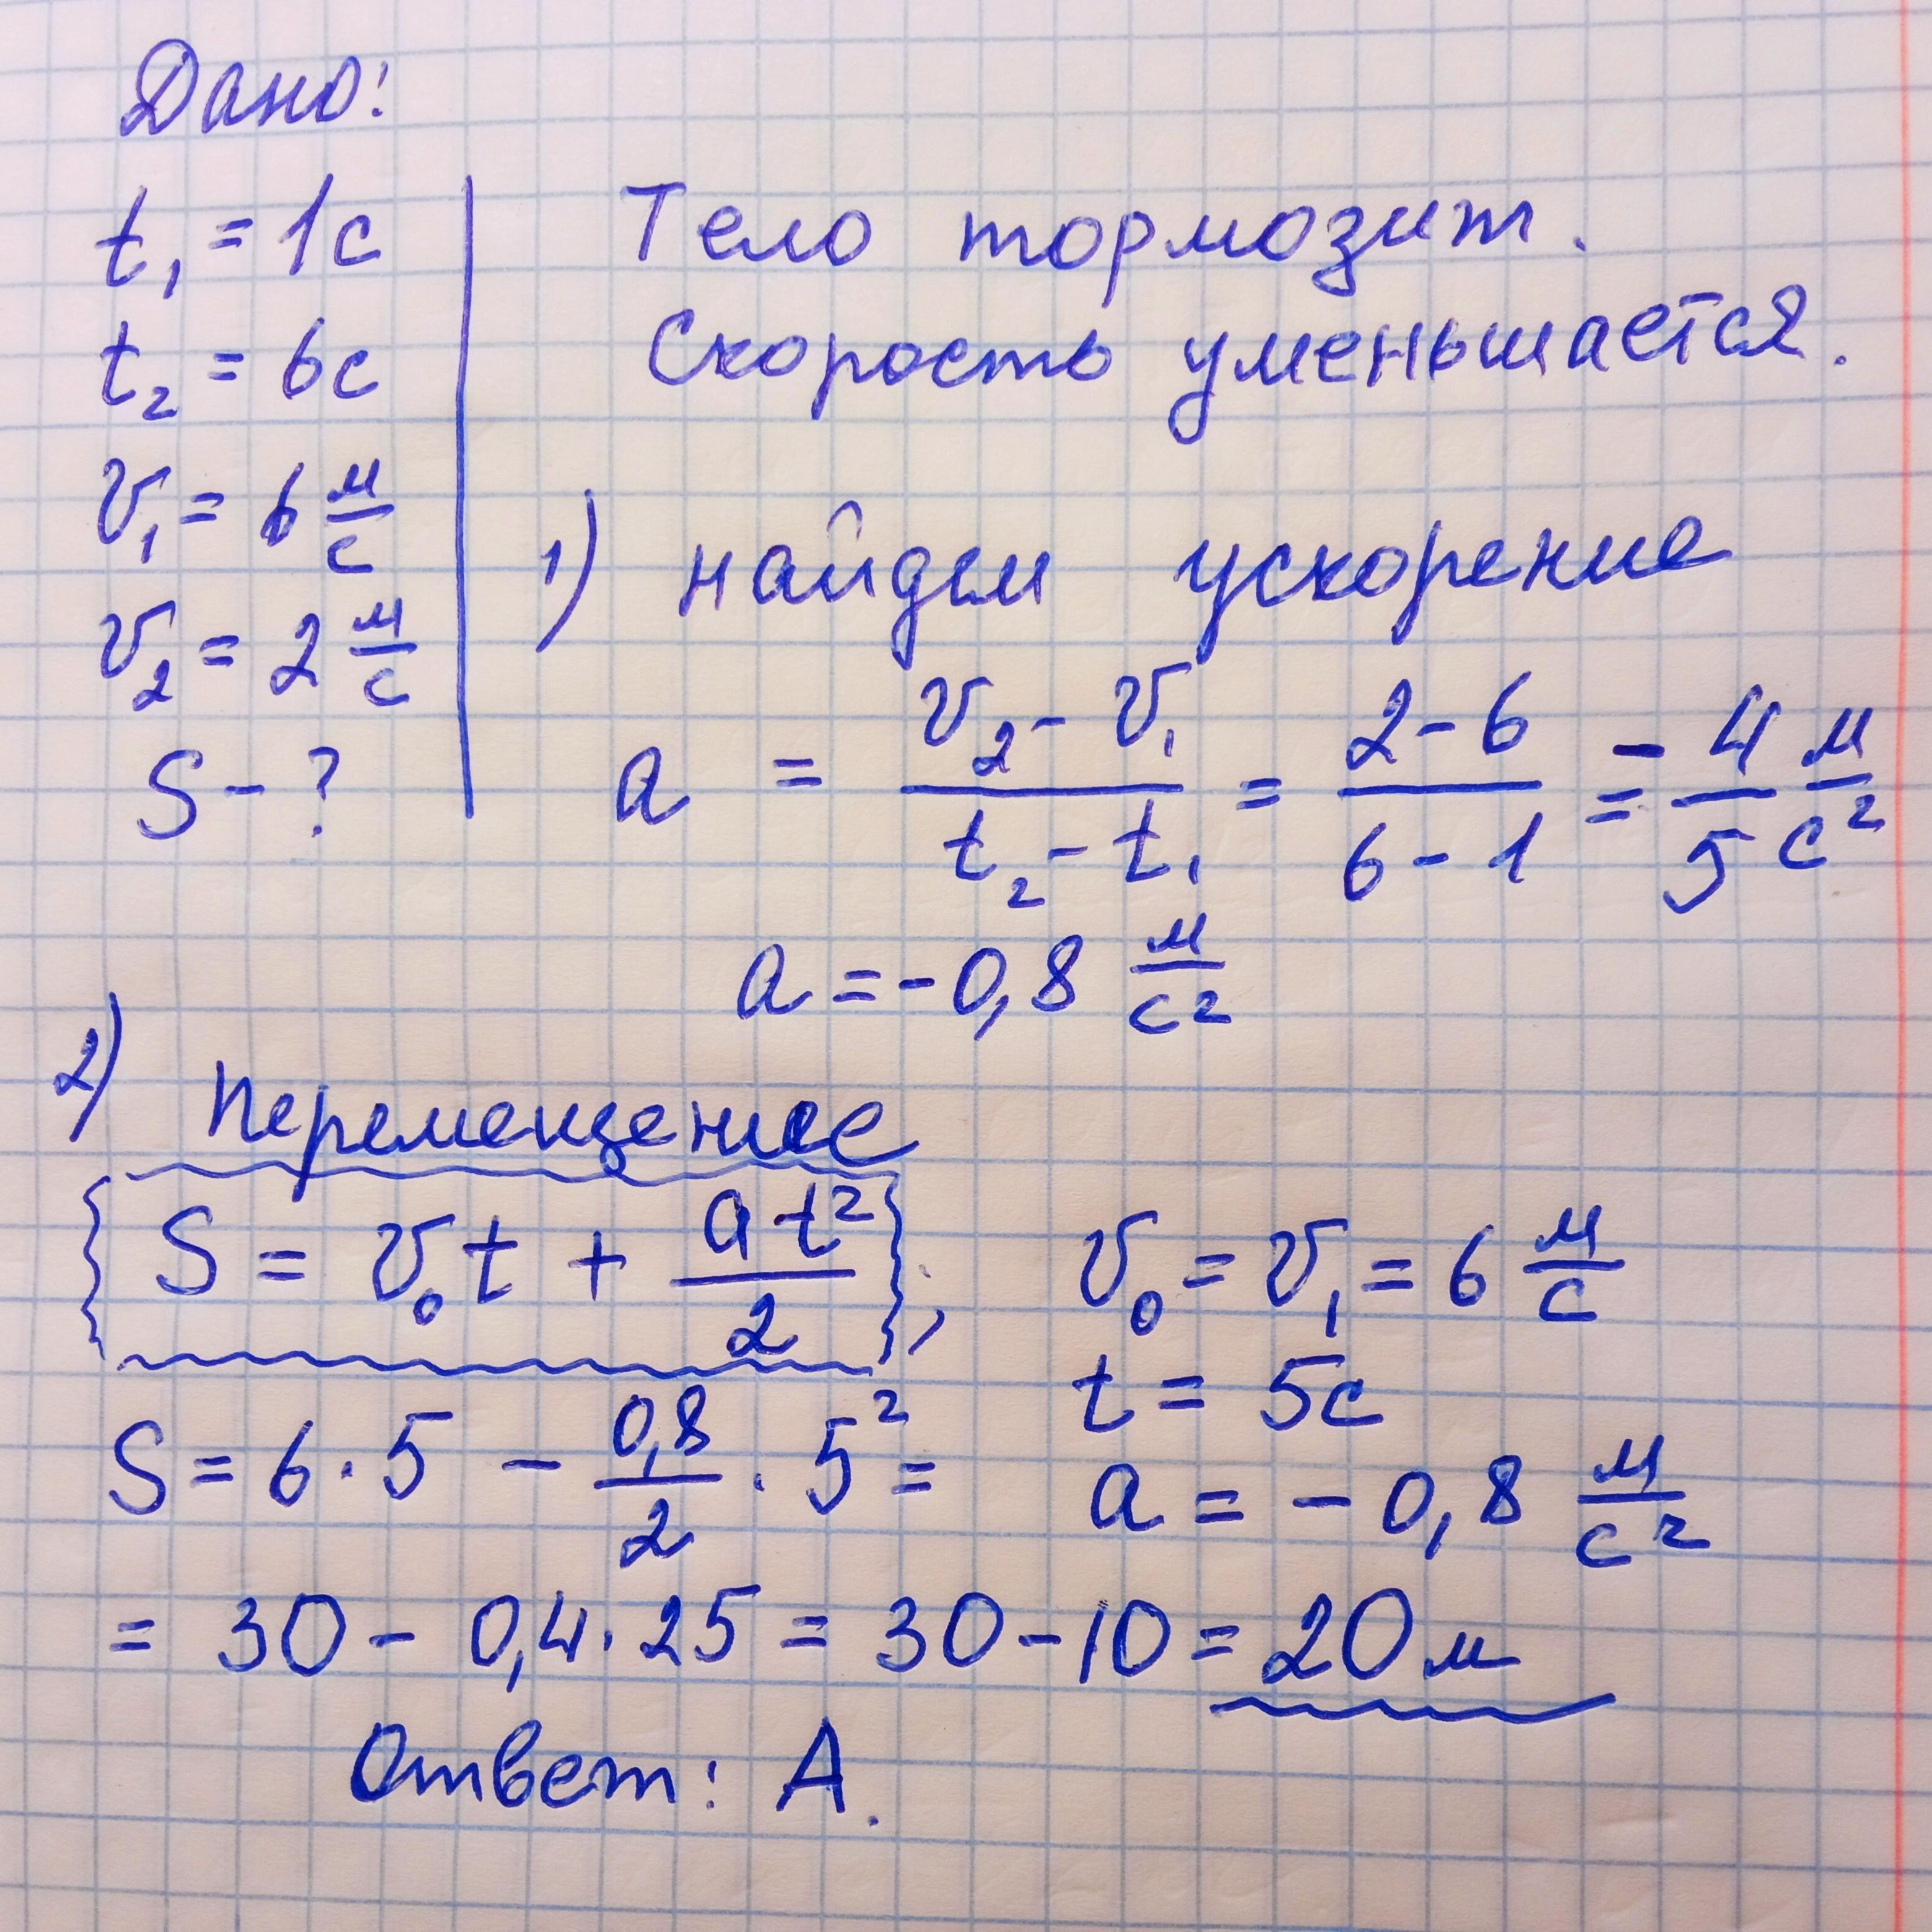 Дано:
t₁ = 1с
t₂ = 6с
v₁ = 6 м/с
v₂ = 2 м/с
S - ?
Тело тормозит.
Скорость уменьшается.
1) найдем ускорение
a = (v₂ - v₁)/(t₂ - t₁) = (2 - 6)/(6 - 1) = -4/5 м/с²
a = -0,8 м/с²
2) Перемещение
S = v₀t + at²/2,
v₀ = v₁ = 6 м/с
t = 5с
a = -0,8 м/с²
S = 6·5 - 0,8/2 · 5² =
= 30 - 0,4·25 = 30 - 10 = 20м
Ответ: А.